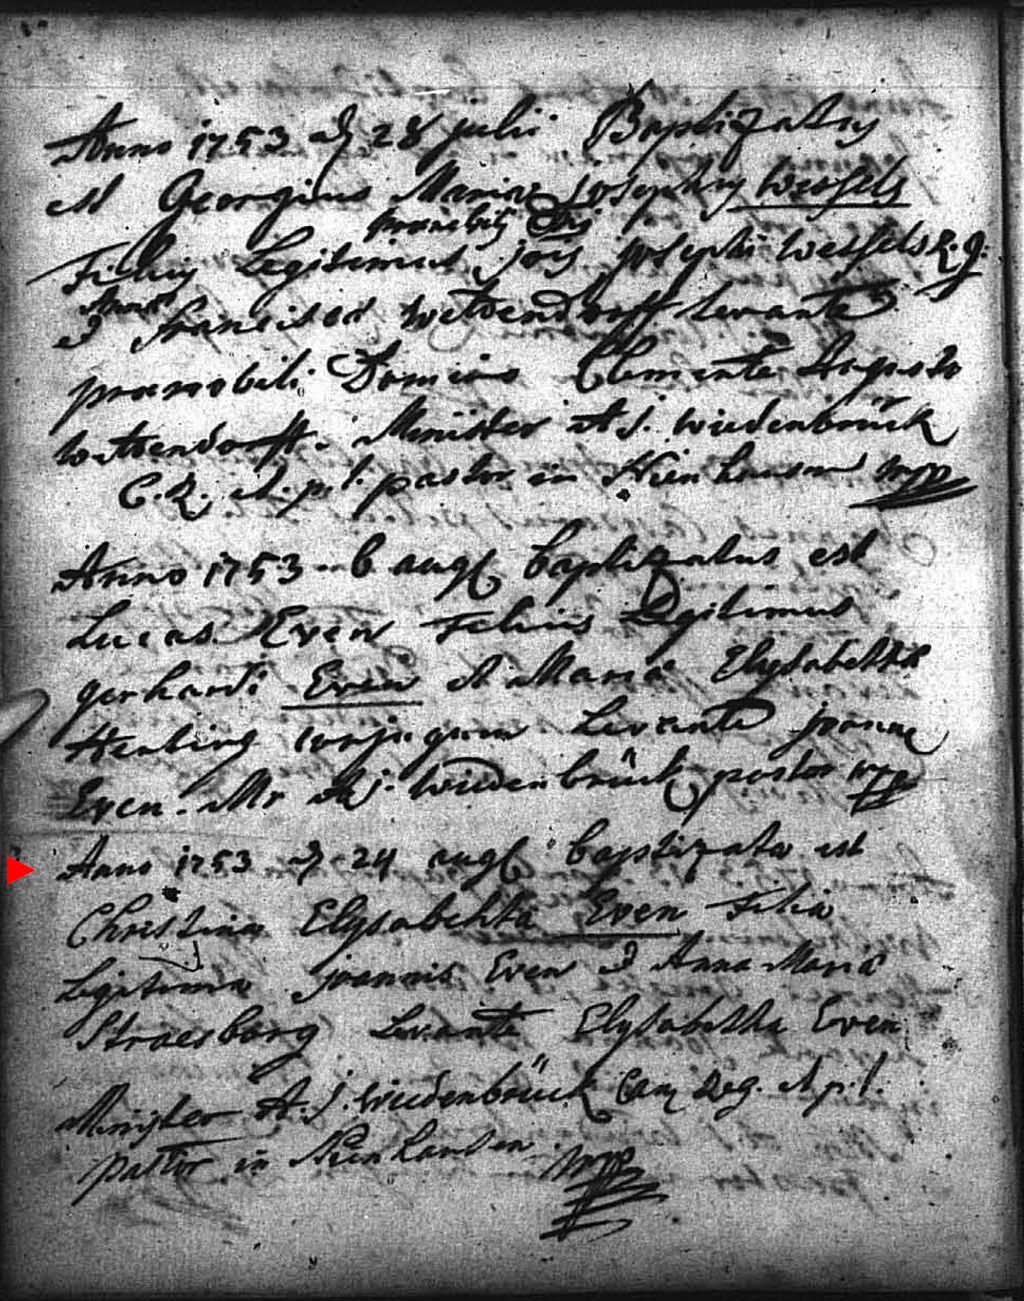 Anno 1753 d 28 julii Baptizatus
est Georgius Maria Josephus Wessels
praenobilis Dni
Filius Legitimus Jois Josephi Wessels R. J.
Annae
& Francisca Wettendorff Levante
praenobili Domino Clemente Augusto
Wettendorff. Minister A. J. Wiedenbrück
C. R. A. p. t. pastor in Nienhausen mpp
Anno 1753 6 aug baptizatus est
Lucas Even Filius Legitimus
gerhardi Even & Maria Elysabetha
conjugum Levante
Even. Mr A. J. Wiedenbrück pastor mpp
Anno 1753 d 24 aug baptizata est
Christina Elysabetha Even Filia
Legitima joannis Even & Anna Maria
Straesborg Levante Elysabetha Even
Minister A. J. Wiedenbrück Can Reg. A. p. t.
pastor in Nienhausen mpp